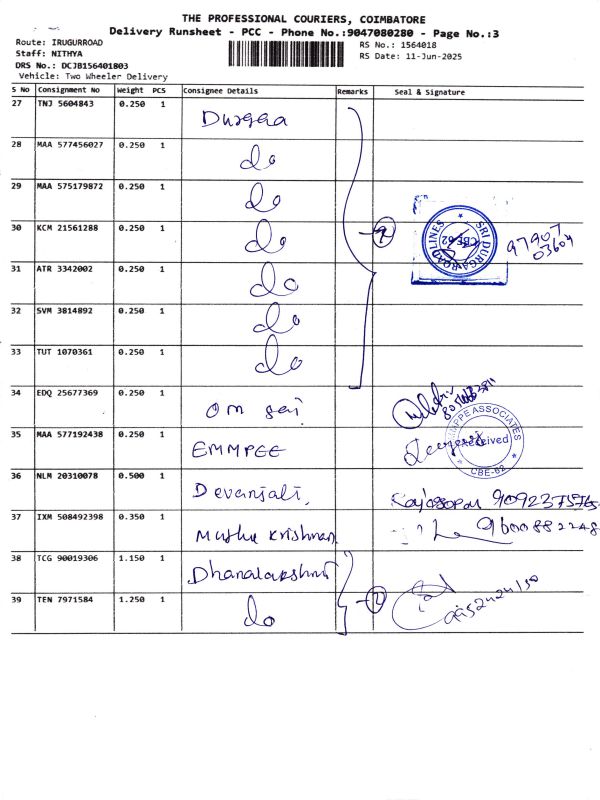 THE PROFESSIONAL COURIERS, COIMBATORE
Delivery Runsheet - PCC - Phone No.:9047080280 - Page No.:3
Route: IRUGURROAD
Staff: NITHYA
DRS No.: DCJB156401803
Vehicle: Two Wheeler Delivery
RS No.: 1564018
RS Date: 11-Jun-2025
S No Consignment No Weight PCS Consignee Details Remarks Seal & Signature
27 TNJ 5604843 0.250 1 Durgaa
28 MAA 577456027 0.250 1 do
29 MAA 575179872 0.250 1 do
30 KCM 21561288 0.250 1 do
SRI DURGA ROAD LINES
CBE-62
97907
03604
31 ATR 3342002 0.250 1 do
32 SVM 3814892 0.250 1 do
33 TUT 1070361 0.250 1 do
34 EDQ 25677369 0.250 1 Om sai
35 MAA 577192438 0.250 1 EMMPEE
ASSOCIATES
Received
CBE-62
36 NLM 20310078 0.500 1 Devanjali,
37 IXM 508492398 0.350 1 Muthu Krishnan 9600882248
38 TCG 90019306 1.150 1 Dhanalakshmi
39 TEN 7971584 1.250 1 do 2